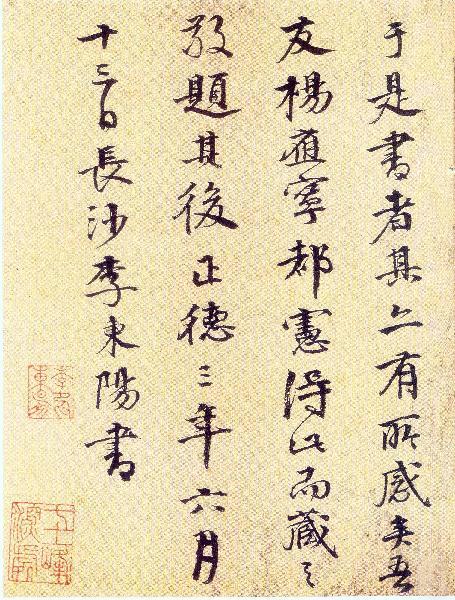 于是書者其亦有所感矣吾
友楊應寧都憲得此而藏之
敬題其後正德三年六月
十三日長沙李東陽書